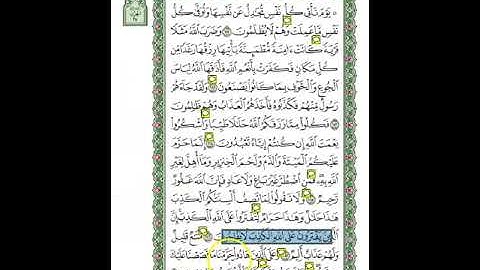 ۞ يَوْمَ تَأْتِي كُلُّ نَفْسٍ تُجَٰدِلُ عَن نَّفْسِهَا وَتُوَفَّىٰ كُلُّ
نَفْسٍ مَّا عَمِلَتْ وَهُمْ لَا يُظْلَمُونَ وَضَرَبَ ٱللَّهُ مَثَلًا
قَرْيَةً كَانَتْ ءَامِنَةً مُّطْمَئِنَّةً يَأْتِيهَا رِزْقُهَا رَغَدًا مِّن
كُلِّ مَكَانٍ فَكَفَرَتْ بِأَنْعُمِ ٱللَّهِ فَأَذَٰقَهَا ٱللَّهُ لِبَاسَ
ٱلْجُوعِ وَٱلْخَوْفِ بِمَا كَانُوا۟ يَصْنَعُونَ وَلَقَدْ جَآءَهُمْ
رَسُولٌ مِّنْهُمْ فَكَذَّبُوهُ فَأَخَذَهُمُ ٱلْعَذَابُ وَهُمْ ظَٰلِمُونَ
فَكُلُوا۟ مِمَّا رَزَقَكُمُ ٱللَّهُ حَلَٰلًا طَيِّبًا وَٱشْكُرُوا۟
نِعْمَتَ ٱللَّهِ إِن كُنتُمْ إِيَّاهُ تَعْبُدُونَ إِنَّمَا حَرَّمَ
عَلَيْكُمُ ٱلْمَيْتَةَ وَٱلدَّمَ وَلَحْمَ ٱلْخِنزِيرِ وَمَآ أُهِلَّ لِغَيْرِ
ٱللَّهِ بِهِۦ فَمَنِ ٱضْطُرَّ غَيْرَ بَاغٍ وَلَا عَادٍ فَإِنَّ ٱللَّهَ غَفُورٌ
رَّحِيمٌ وَلَا تَقُولُوا۟ لِمَا تَصِفُ أَلْسِنَتُكُمُ ٱلْكَذِبَ
هَٰذَا حَلَٰلٌ وَهَٰذَا حَرَامٌ لِّتَفْتَرُوا۟ عَلَى ٱللَّهِ ٱلْكَذِبَ إِنَّ
ٱلَّذِينَ يَفْتَرُونَ عَلَى ٱللَّهِ ٱلْكَذِبَ لَا يُفْلِحُونَ مَتَٰعٌ قَلِيلٌ
وَلَهُمْ عَذَابٌ أَلِيمٌ وَعَلَى ٱلَّذِينَ هَادُوا۟ حَرَّمْنَا مَا قَصَصْنَا عَلَيْكَ